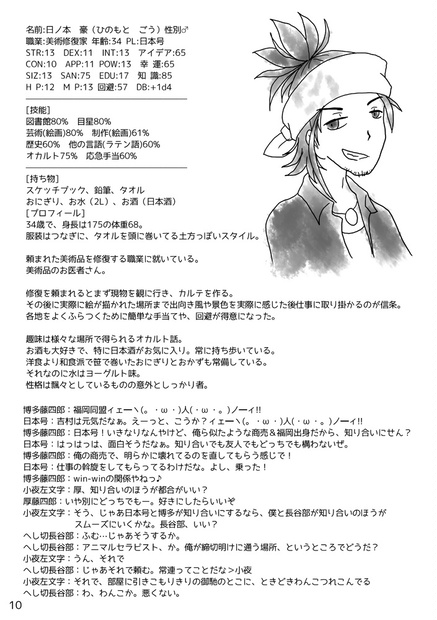 名前:日ノ本　豪（ひのもと　ごう）性別♂
職業:美術修復家 年齢:34 PL:日本号
STR:13　DEX:11　INT:13　アイデア:65
CON:10　APP:11 POW:13　幸　運:65
SIZ:13　SAN:75　EDU:17　知　識:85
H P:12　M P:13 回避:57　DB:+1d4
[技能]
図書館80%　目星80%
芸術(絵画)80%　制作(絵画)61%
歴史60%　他の言語(ラテン語)60%
オカルト75%　応急手当60%
[持ち物]
スケッチブック、鉛筆、タオル
おにぎり、お水（2L）、お酒（日本酒）
[プロフィール]
34歳で、身長は175の体重68。
服装はつなぎに、タオルを頭に巻いてる土方っぽいスタイル。
頼まれた美術品を修復する職業に就いている。
美術品のお医者さん。
修復を頼まれるとまず現物を観に行き、カルテを作る。
その後に実際に絵が描かれた場所まで出向き風や景色を実際に感じた後仕事に取り掛かるのが信条。
各地をよくふらつくために簡単な手当てや、回避が得意になった。
趣味は様々な場所で得られるオカルト話。
お酒も大好きで、特に日本酒がお気に入り。常に持ち歩いている。
洋食より和食派で笹で巻いたおにぎりとおかずも常備している。
それなのに水はヨーグルト味。
性格は飄々としているものの意外としっかり者。
博多藤四郎：福岡同盟ィェーヽ(。・ω・)人(・ω・。)ノーィ!!
日本号：吉村は元気だなぁ。えーっと、こうか？ィェーヽ(。・ω・)人(・ω・。)ノーィ!!
博多藤四郎：日本号！いきなりなんやけど、俺ら似たような商売＆福岡出身だから、知り合いにせん？
日本号：はっはっは、面白そうだなぁ。知り合いでも友人でもどっちでも構わないぜ。
博多藤四郎：俺の商売で、明らかに壊れてるのを直してもらう感じで！
日本号：仕事の斡旋をしてもらってるわけだな。よし、乗った！
博多藤四郎：win-winの関係やねっ♪
小夜左文字：厚、知り合いのほうが都合がいい？
厚藤四郎：いや別にどっちでもー。好きにしたらいいぞ
小夜左文字：そう、じゃあ日本号と博多が知り合いにするなら、僕と長谷部が知り合いのほうが
スムーズにいくかな。長谷部、いい？
へし切長谷部：ふむ…じゃあそうするか。
へし切長谷部：アニマルセラピスト、か。俺が締切明けに通う場所、というところでどうだ？
小夜左文字：うん、それで
へし切長谷部：じゃあそれで頼む。常連ってことだな＞小夜
小夜左文字：それで、部屋に引きこもりきりの御馳のとこに、ときどきわんこつれこんでる
へし切長谷部：わ、わんこか。悪くない。
10